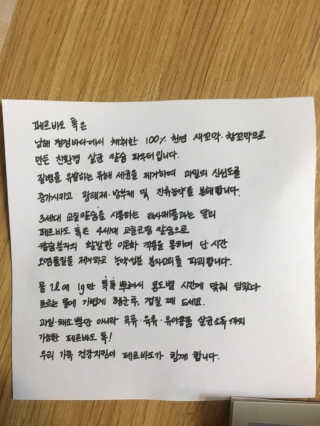 페르바도 톡은
남해 청정바다에서 채취한 100% 천연 새꼬막·참꼬막으로
만든 친환경 살균 칼슘 파우더입니다.
질병을 유발하는 유해 세균을 제거하며 과일의 신선도를
증가시키고 왁스제·방부제 및 잔류농약을 분해합니다.
3세대 교질칼슘을 사용하는 타사제품과는 달리
페르바도 톡은 4세대 고열고정 칼슘으로
칼슘분자의 활발한 이온화 작용을 통하여 단 시간
오염물질을 제거하고 농약성분 분자고리를 파괴합니다.
물 2L에 1g만 톡톡 뿌려서 용도별 시간에 맞춰 담궜다
흐르는 물에 가볍게 헹군후, 건질 때 드세요.
과일·채소뿐만 아니라 육류·어류·유아용품 살균소독까지
가능한 페르바도 톡!
우리 가족 건강지킴이 페르바도가 함께 합니다.